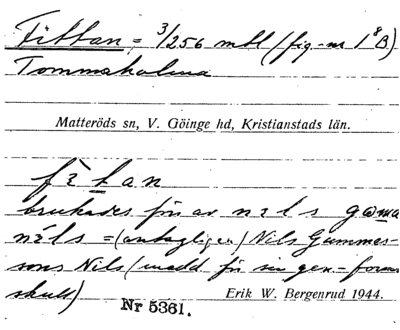 Fittan = 3/256 mtl (fig-nr 1⁸B)
Tommaholma
Matteröds sn, V. Göinge hd, Kristianstads län.
fètan
brukades förr av nels gɷma
nèls = (antagligen) Nils Gummes-
sons Nils (medd för sin gen.-forms
skull)
Erik W. Bergenrud 1944.
Nr 5361.